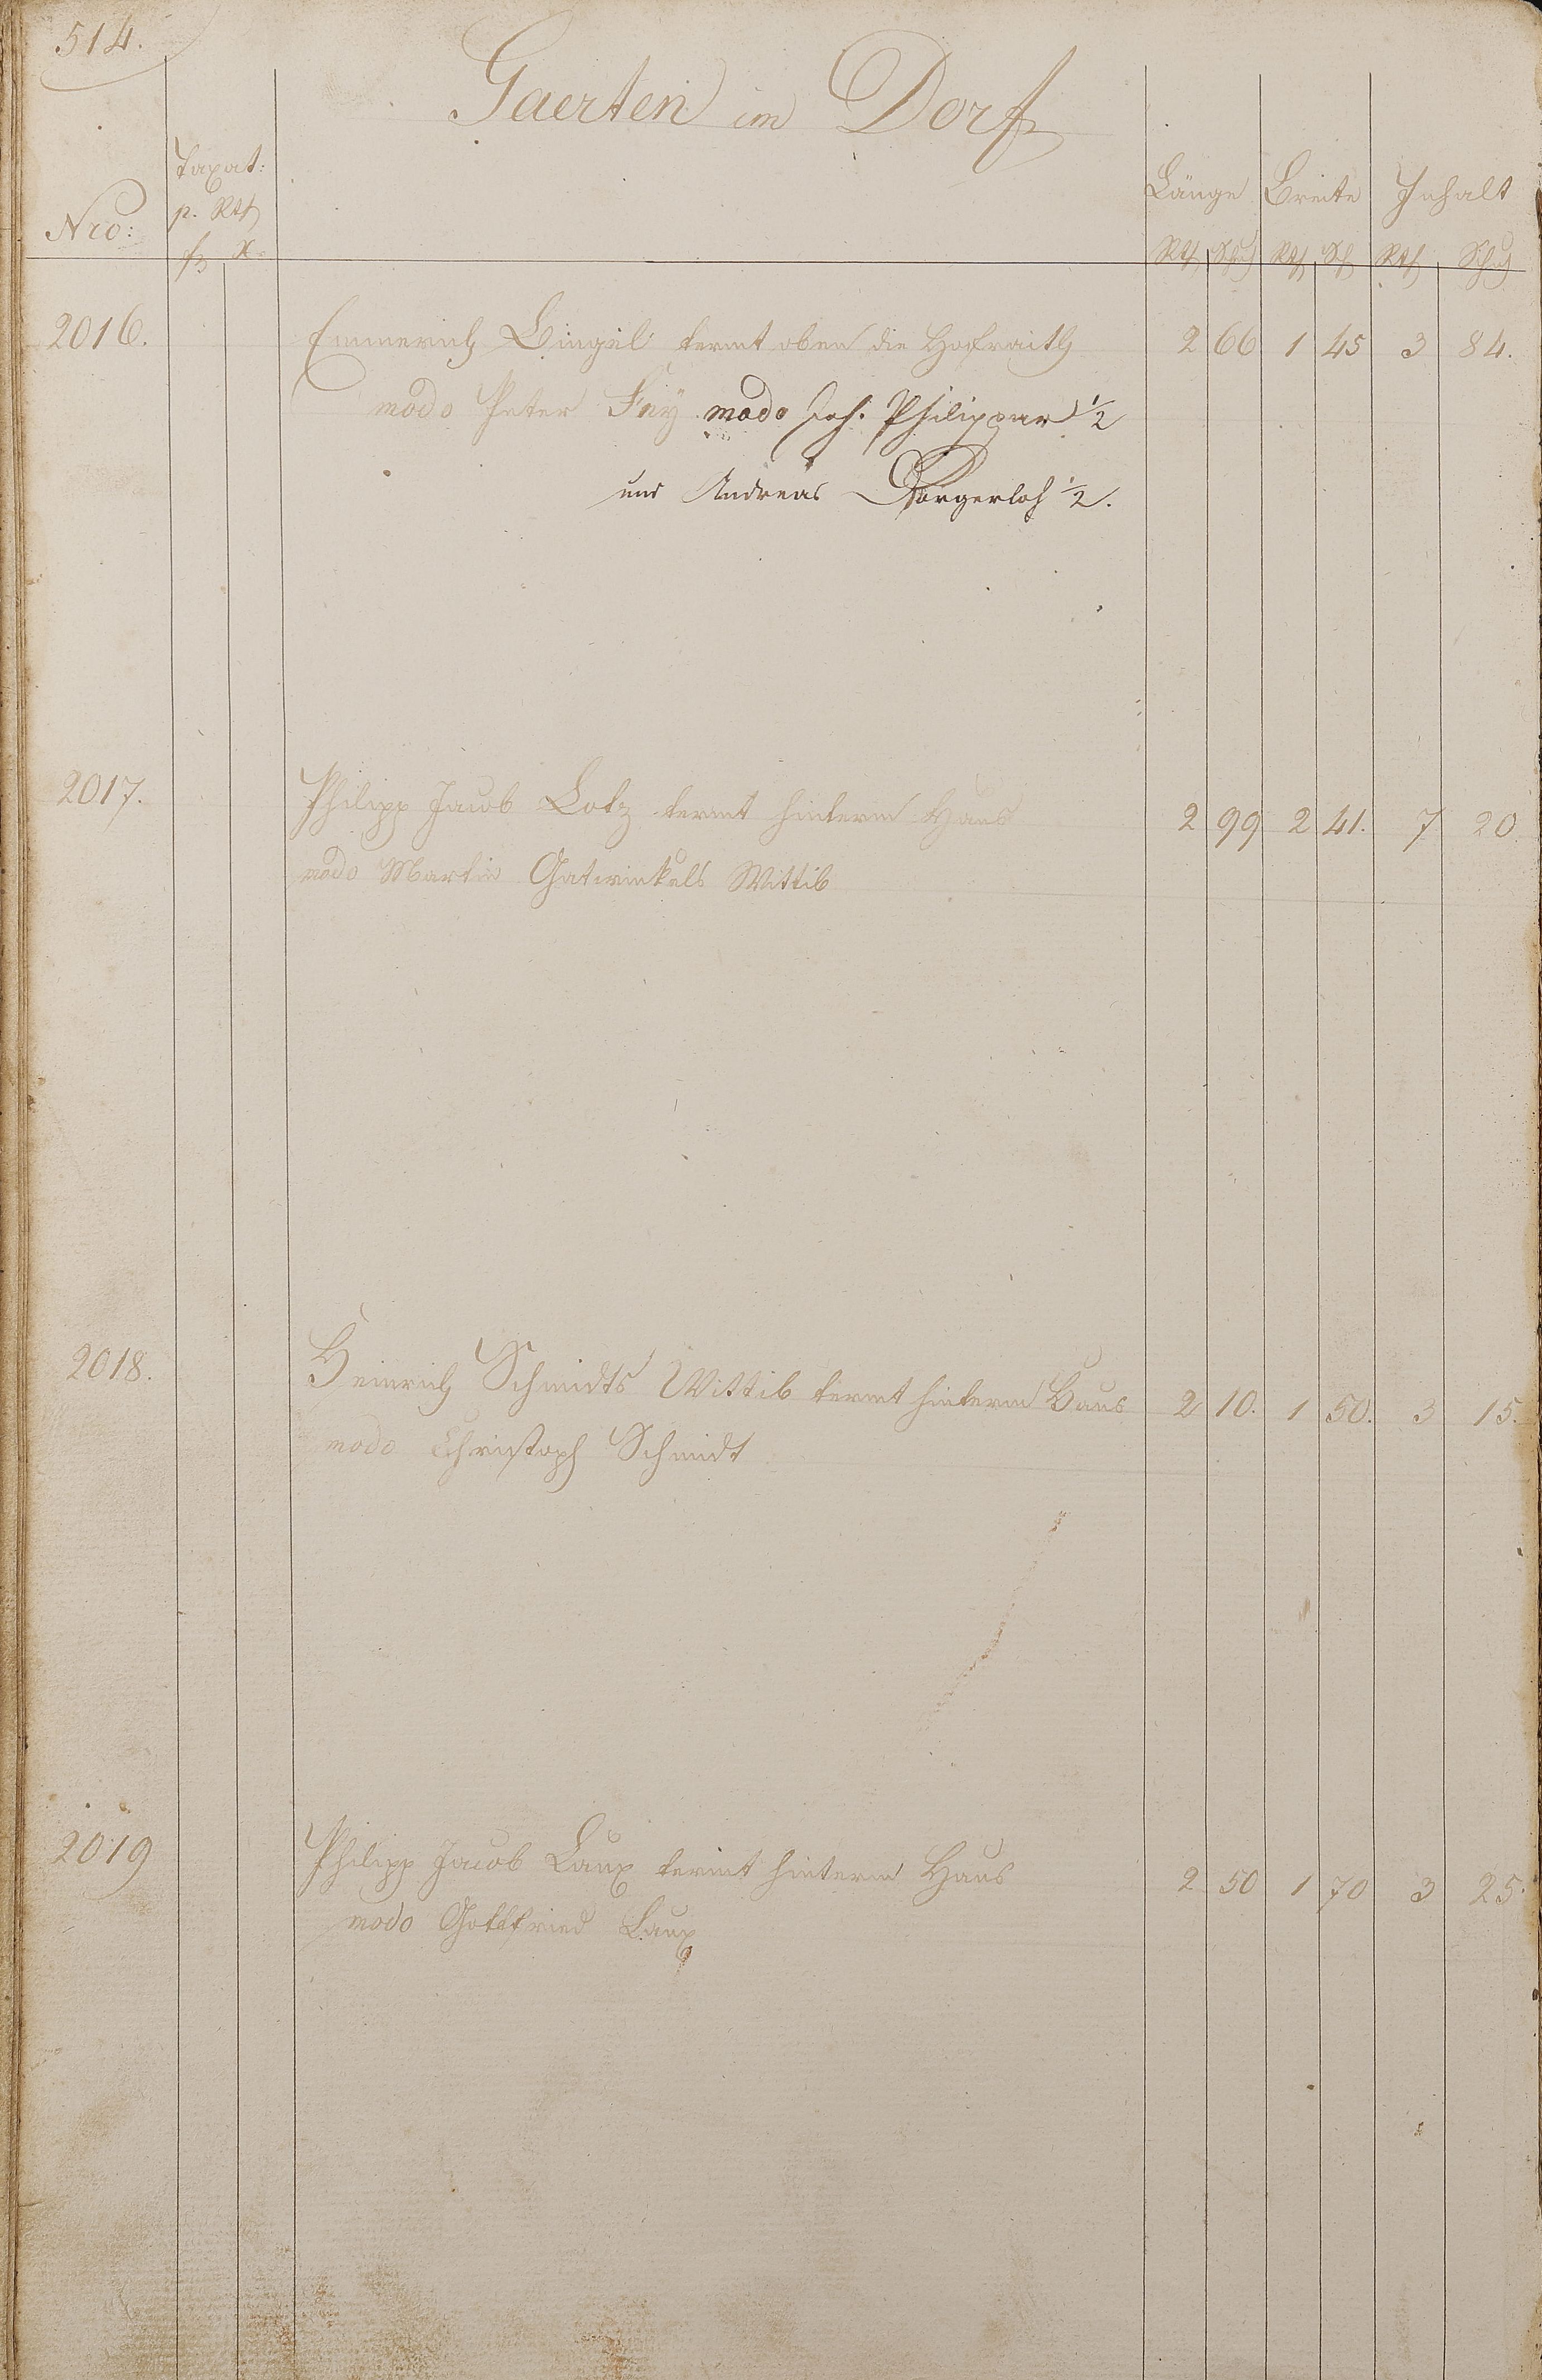 514.
Gaerten im Dorf
Nro:
Taxat:
p. Rth
f x
Länge Breite Inhalt
Rth Schuh Rth Sch Rth Schuh
2016. Emmerich Bingel termt oben die Hofraith 2 66 1 45 3 84.
modo Peter Fey modo Joh. Philippar 1/2
und Andreas Dorgerloh 1/2.
2017. Philipp Jacob Lotz termt hinterm Haus 2 99 2 41. 7 20
modo Martin Gatwinkels Wittib
2018. Heinrich Schmidts Wittib termt hinterm Haus 2 10. 1 50. 3 15.
modo Christoph Schmidt
2019 Philipp Jacob Laux termt hinterm Haus 2 50 1 70 3 25.
modo Gottfried Laux